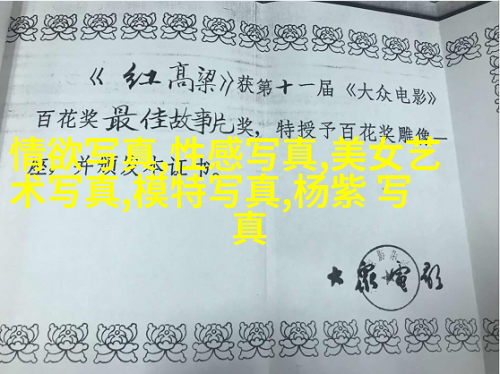 《红高粱》获第十一届《大众电影》
百花奖最佳故事片奖，特授予百花奖雕像一
座，并颁发本证书。
情欲写真,性感写真,美女艺
术写真,模特写真,杨紫 写
真
大众电影